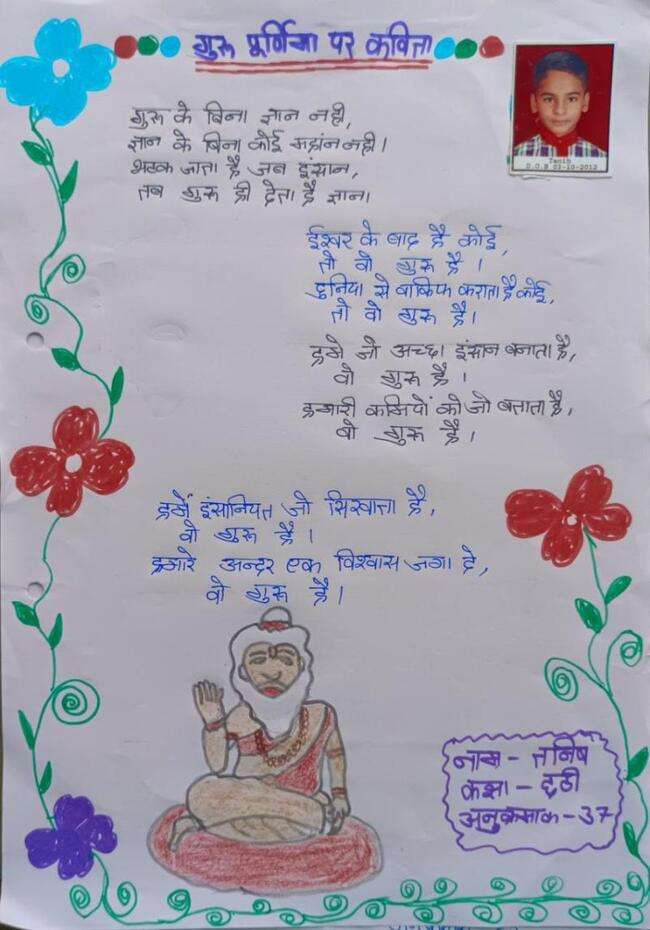 गुरु पूर्णिमा पर कविता
Tanih
D.O.B 03-10-2012
गुरु के बिना ज्ञान नही,
ज्ञान के बिना कोई महान नही।
भटक जाता है जब इंसान,
तब गुरु ही देता है ज्ञान।
ईश्वर के बाद है कोई,
तो वो गुरु है।
दुनिया से वाकिफ कराता है कोई,
तो वो गुरु है।
हमे जो अच्छा इंसान बनाता है,
वो गुरु है।
हमारी कमियों को जो बताता है,
वो गुरु है।
हमें इंसानियत जो सिखाता है,
वो गुरु है।
हमारे अन्दर एक विश्वास जगा दे,
वो गुरु है।
नाम - तनिष
कक्षा - छठी
अनुक्रमांक - 37